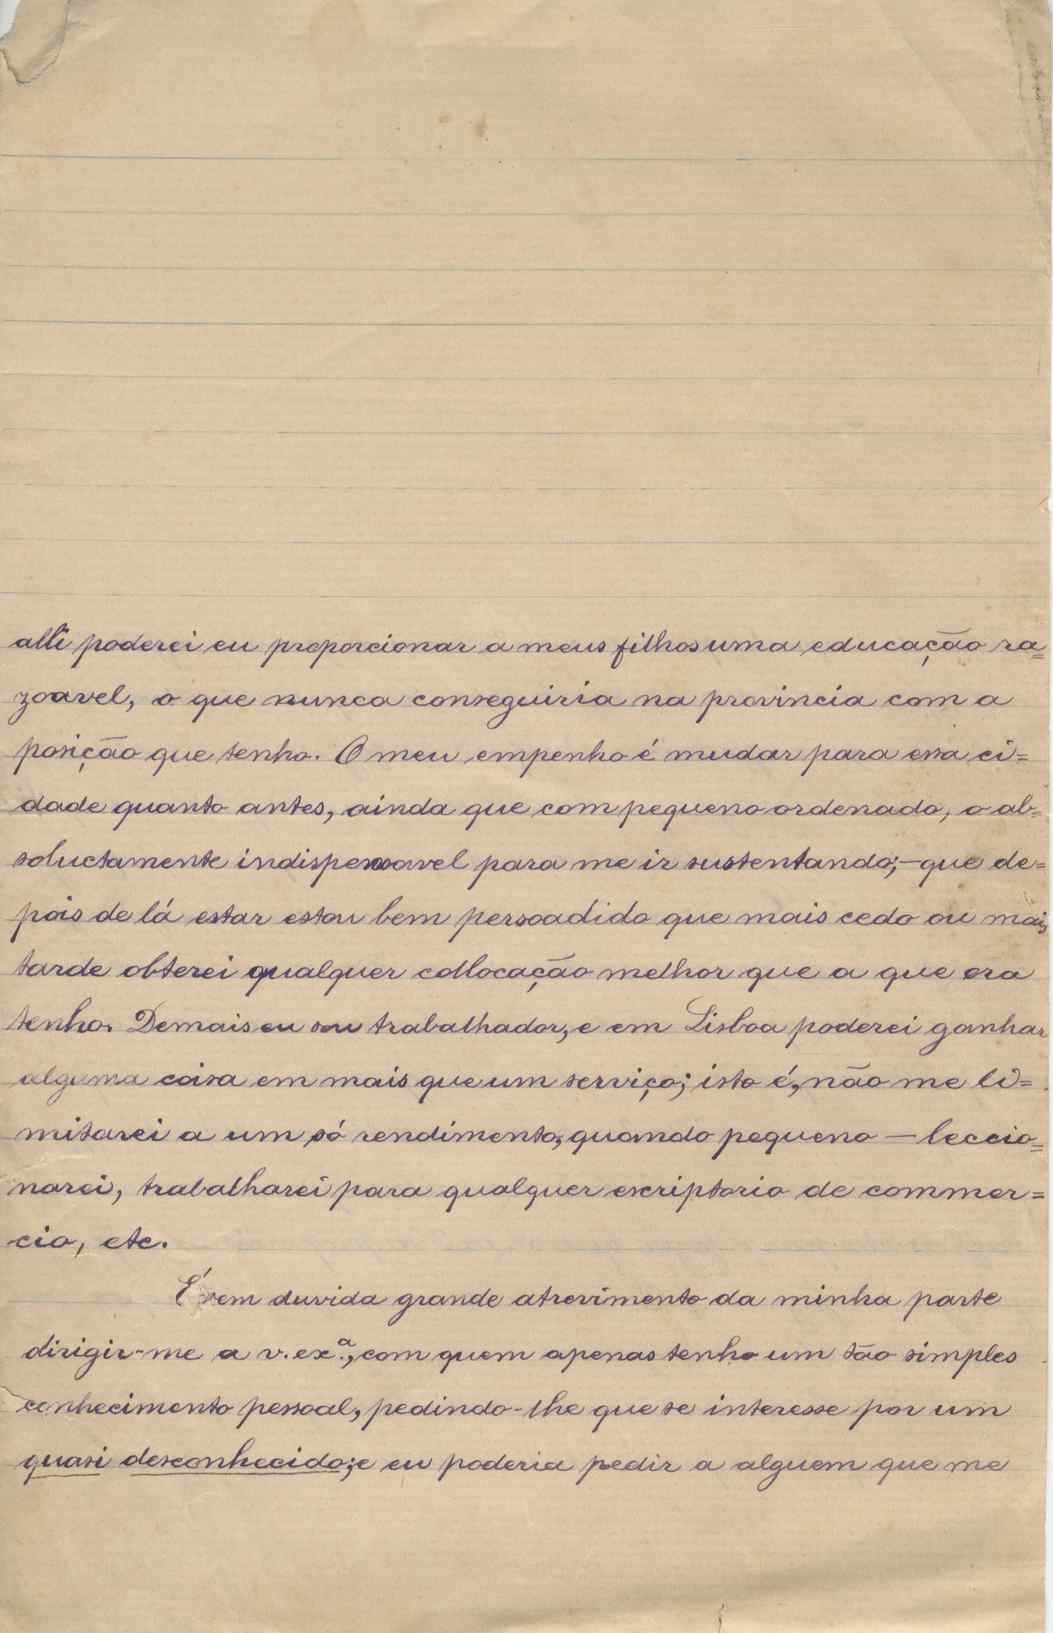 alli poderei eu proporcionar a meus filhos uma educação ra=
zoavel, o que nunca conseguiria na provincia com a
posição que tenho. O meu empenho é mudar para essa ci=
dade quanto antes, ainda que com pequeno ordenado, o ab=
soluctamente indispensavel para me ir sustentando; — que de=
pois de lá estar estou bem persoadido que mais cedo ou mais
tarde obterei qualquer collocação melhor que a que ora
tenho. Demais eu sou trabalhador, e em Lisboa poderei ganhar
alguma coisa em mais que um serviço; isto é, não me li=
mitarei a um só rendimento, quando pequeno — leccio=
narei, trabalharei para qualquer escriptorio de commer=
cio, etc.
É sem duvida grande atrevimento da minha parte
dirigir-me a v. ex.ª, com quem apenas tenho um tão simples
conhecimento pessoal, pedindo-lhe que se interesse por um
quasi desconhecido; e eu poderia pedir a alguem que me